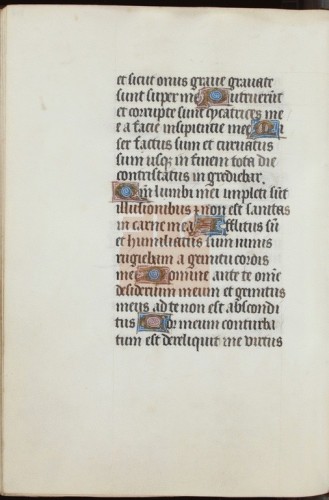 et sicut onus graue grauate
sunt super me Putruerūt
et corrupte sunt cycatrices me
e a facie insipiencie mee Mi
ser factus sum et curuatus
sum usqꝫ in finem tota die
contristatus in grediebar.
Qm̄ lumbi mei impleti sūt
illusionibus ⁊ non est sanitas
in carne mea Afflictus sū
et humiliatus sum nimis
rugiebam a gemitu cordis
mei Domine ante te om̄e
desiderium meum et gemitus
meus ad te non est abscondi
tus Cor meum conturba
tum est dereliquit me virtus